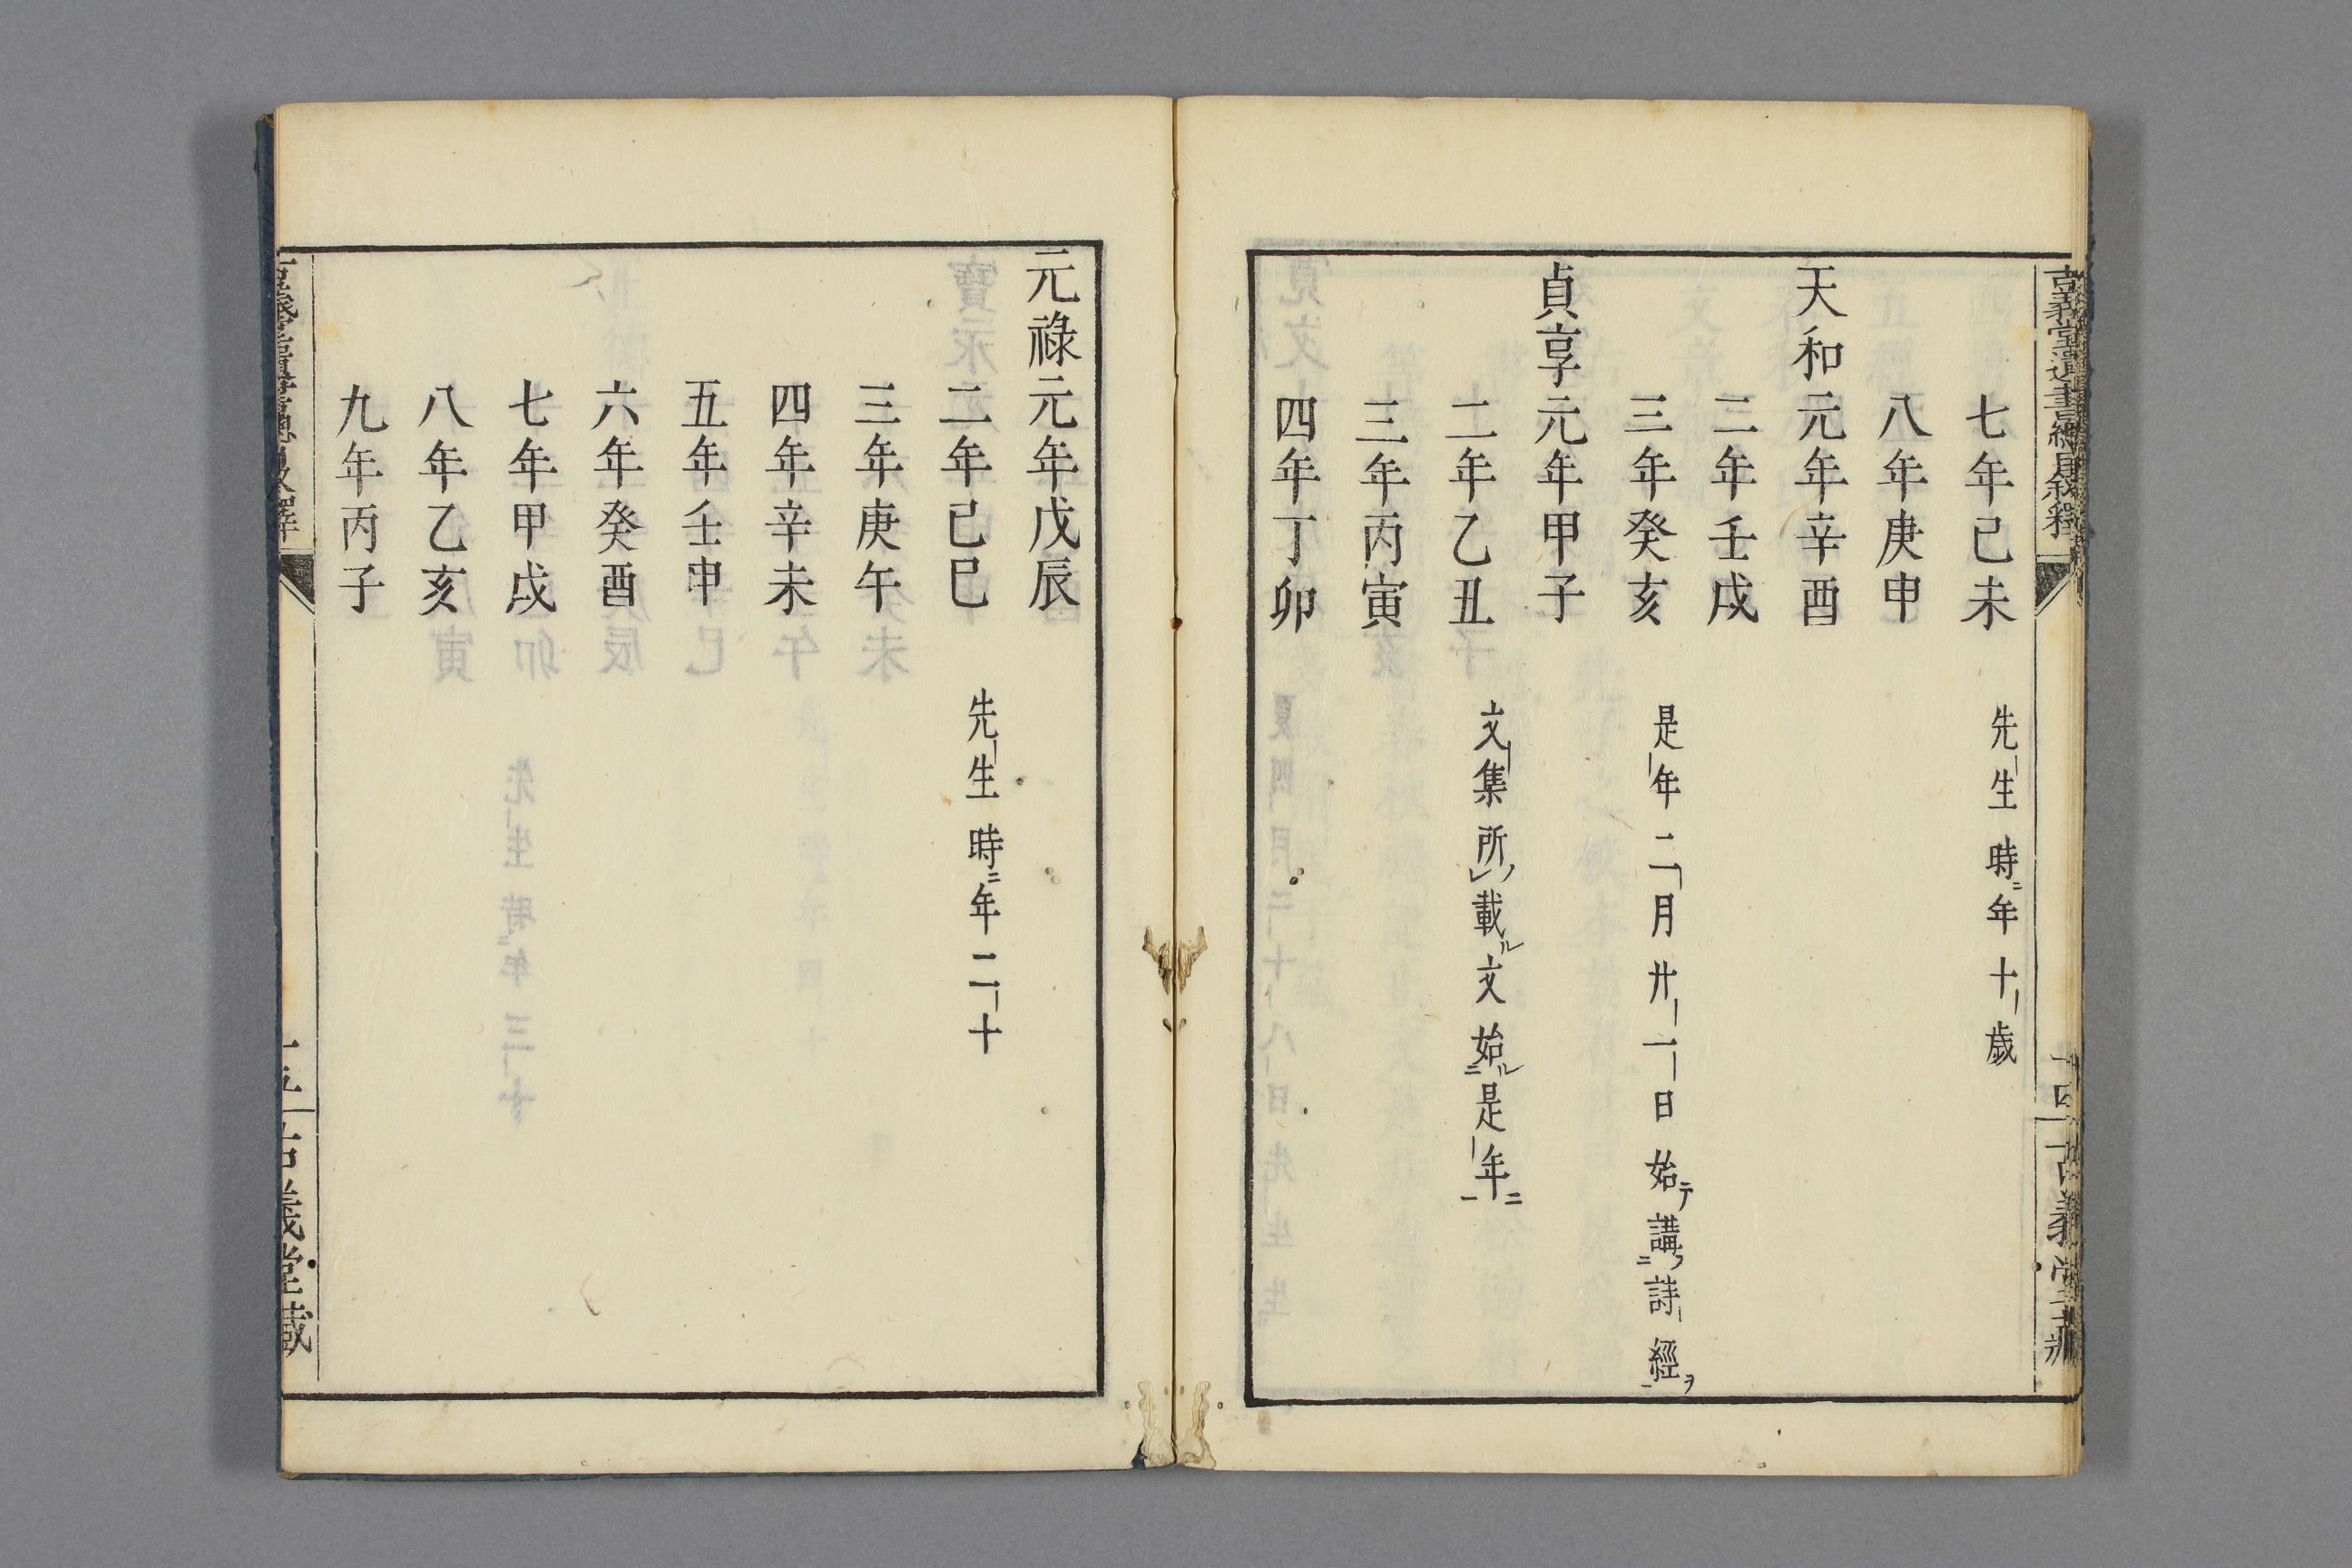 古義堂遺書總目叙釋
十四
古義堂藏
七年己未 先生時ニ年十歳
八年庚申
天和元年辛酉
二年壬戌
三年癸亥 是年二月廿一日始テ講二詩經ヲ一
貞享元年甲子
二年乙丑 文集所ノレ載ル文始ル二是年ニ一
三年丙寅
四年丁卯
元祿元年戊辰
二年己巳 先生時ニ年二十
三年庚午
四年辛未
五年壬申
六年癸酉
七年甲戌
八年乙亥
九年丙子
古義堂藏